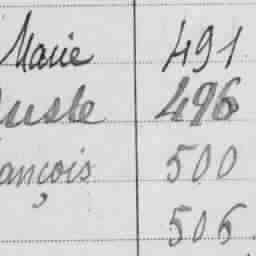 Marie 491
uste 496
ançois 500
506.